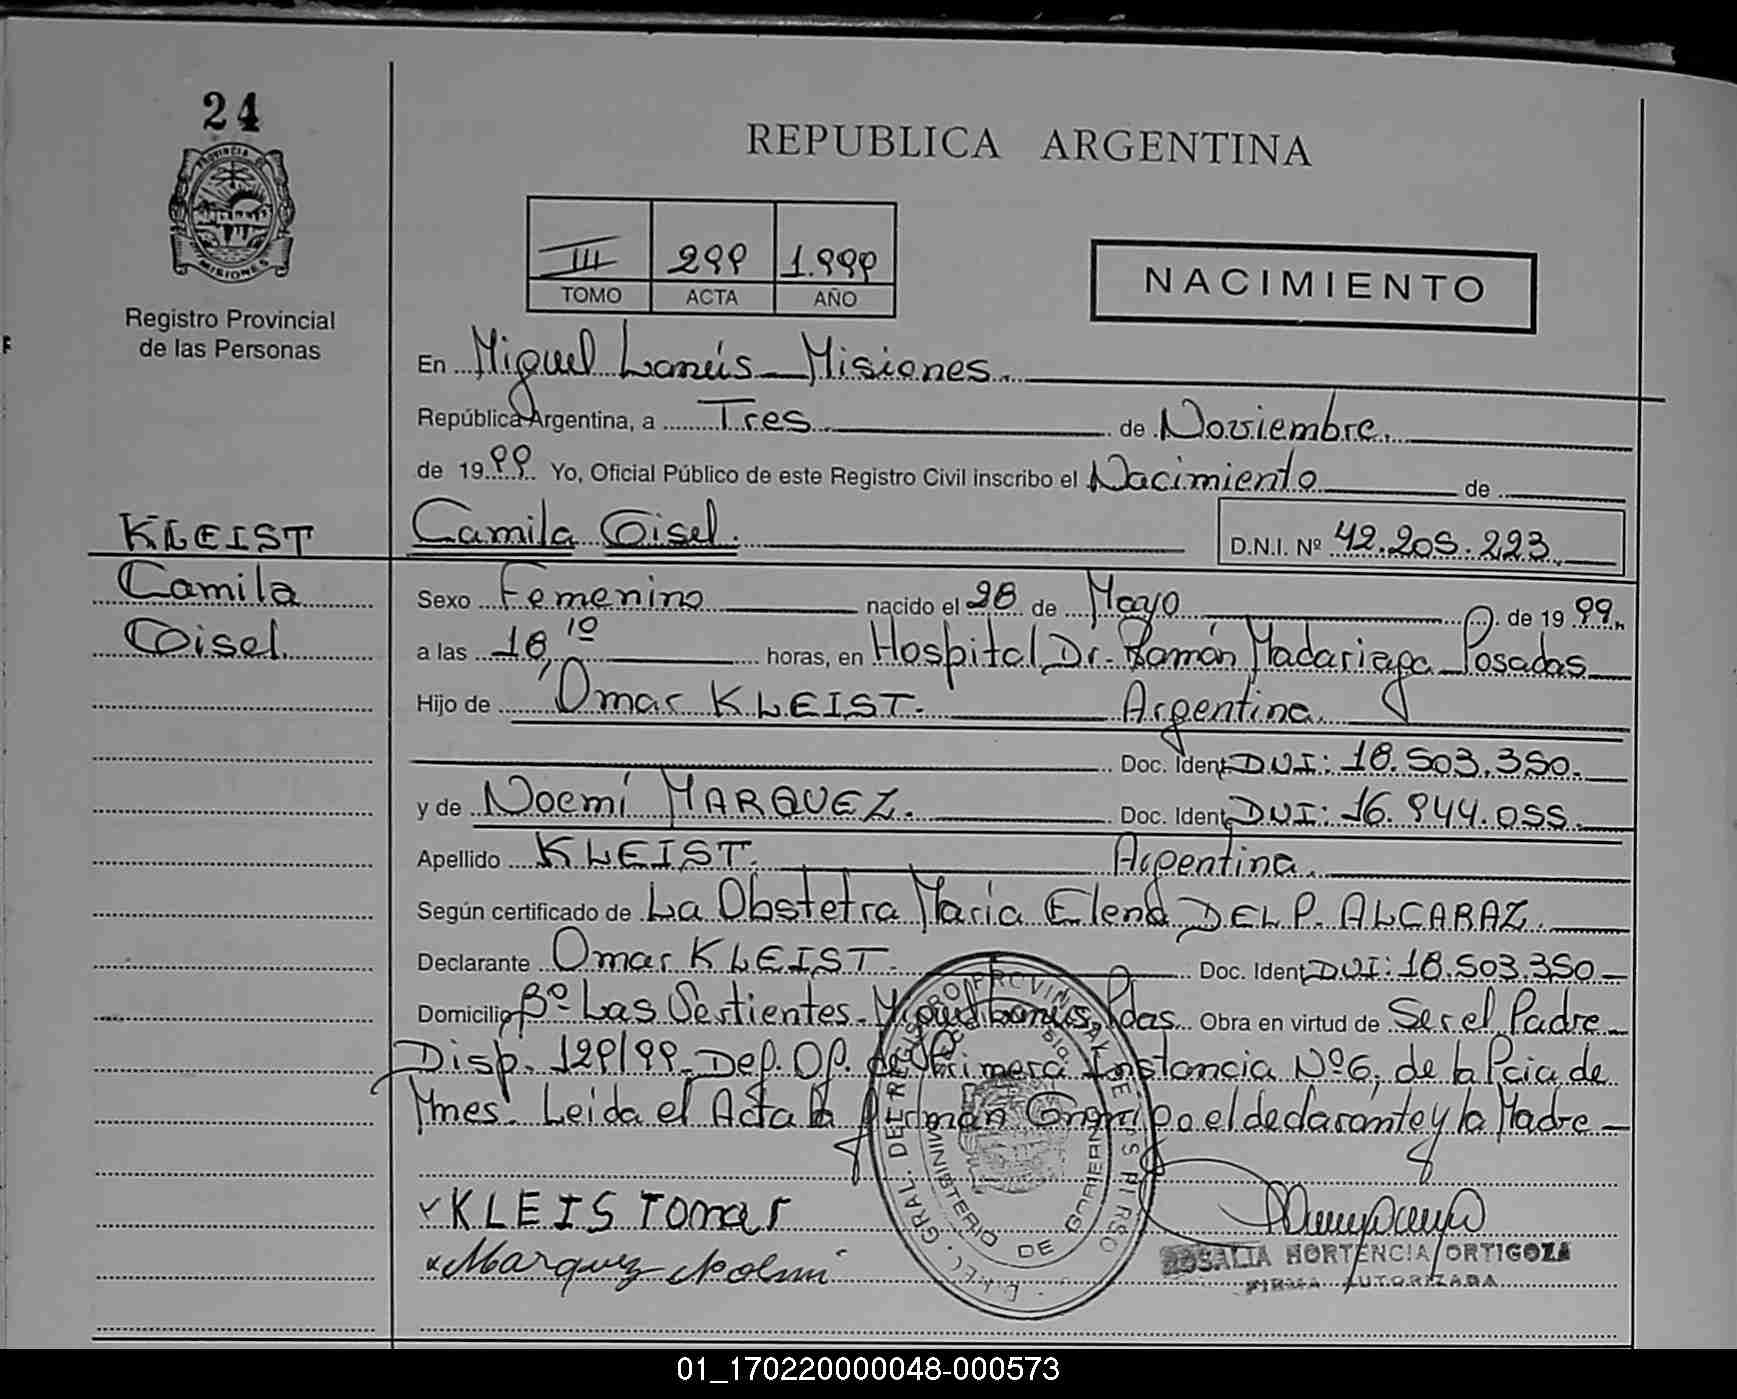 24
PROVINCIA DE
MISIONES
Registro Provincial
de las Personas
REPUBLICA ARGENTINA
III 299 1.999
TOMO ACTA AÑO
NACIMIENTO
En Miguel Lanús - Misiones.
República Argentina, a Tres de Noviembre.
de 1999. Yo, Oficial Público de este Registro Civil inscribo el Nacimiento de
KLEIST
Camila
Gisel.
Camila Gisel.
D.N.I. Nº 42.205.223.
Sexo Femenino nacido el 28 de Mayo de 1999.
a las 18,10 horas, en Hospital Dr. Ramón Madariaga Posadas
Hijo de Omar KLEIST. Argentina.
Doc. Ident. DNI: 18.503.350.
y de Noemí MARQUEZ. Doc. Ident. DNI: 16.944.055.
Apellido KLEIST. Argentina.
Según certificado de La Obstetra María Elena DEL P. ALCARAZ.
Declarante Omar KLEIST. Doc. Ident. DNI: 18.503.350
Domicilio Bº Las Vertientes - Miguel Lanús, Pdas. Obra en virtud de Ser el Padre
Disp. 129/99 - Def. Of. de Primera Instancia Nº6, de la Pcia de
Mnes. Leida el Acta la Firman Conmigo el declarante y la Madre
KLEIS Tomar
Marquez Noemi
ROSALIA HORTENCIA ORTIGOZA
FIRMA AUTORIZADA
MINISTERIO DE GOBIERNO
01_170220000048-000573